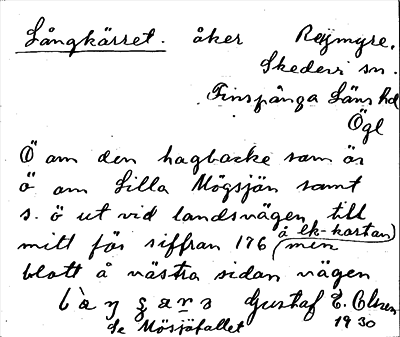 Långkärret. åker Rejmyre,
Skedevi sn.
Finspånga Läns hd
Ögl
Ö om den hagbacke som är
ö om Lilla Mögsjön samt
s. ö ut vid landsvägen till
mitt för siffran 176 (å ek-kartan) men
blott å västra sidan vägen
Gustaf E. Olsson
se Mösjöfallet 1930